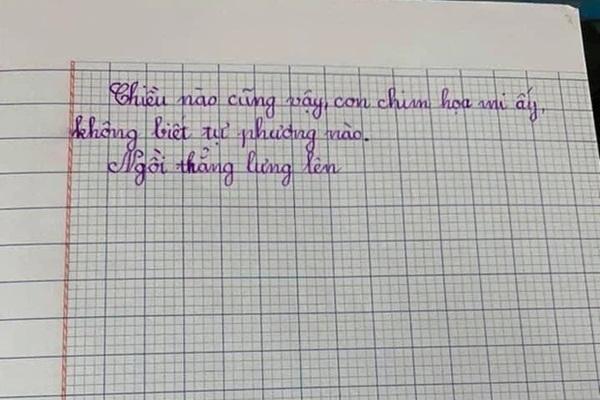 Chiều nào cũng vậy, con chim họa mi ấy,
không biết tự phương nào.
Ngồi thẳng lưng lên